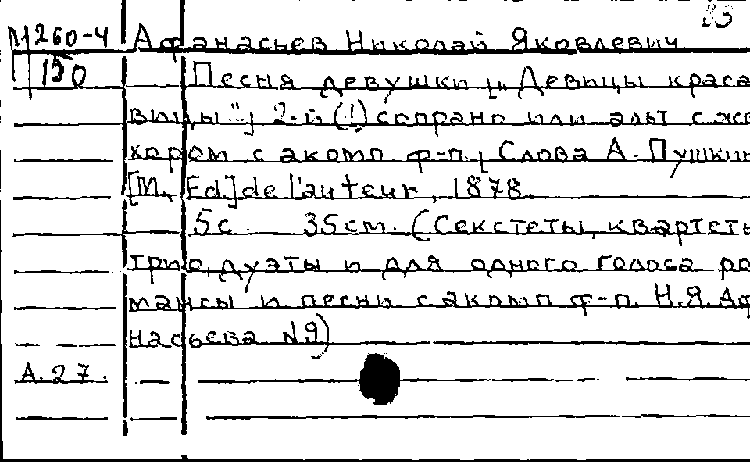 М260-4 Афанасьев Николай Яковлевич
150 Песня девушки ["Девицы краса
вицы"]; 2-й (!) сопрано или альт с же
хором с акомп ф-п., Слова А. Пушкин
[М., Ed] de l'auteur, 1878
5с 35см. (Секстеты, квартеты
трио, дуэты и для одного голоса ро
мансы и песни с акомп ф-п. Н.Я. Аф
насьева №9)
А.27.